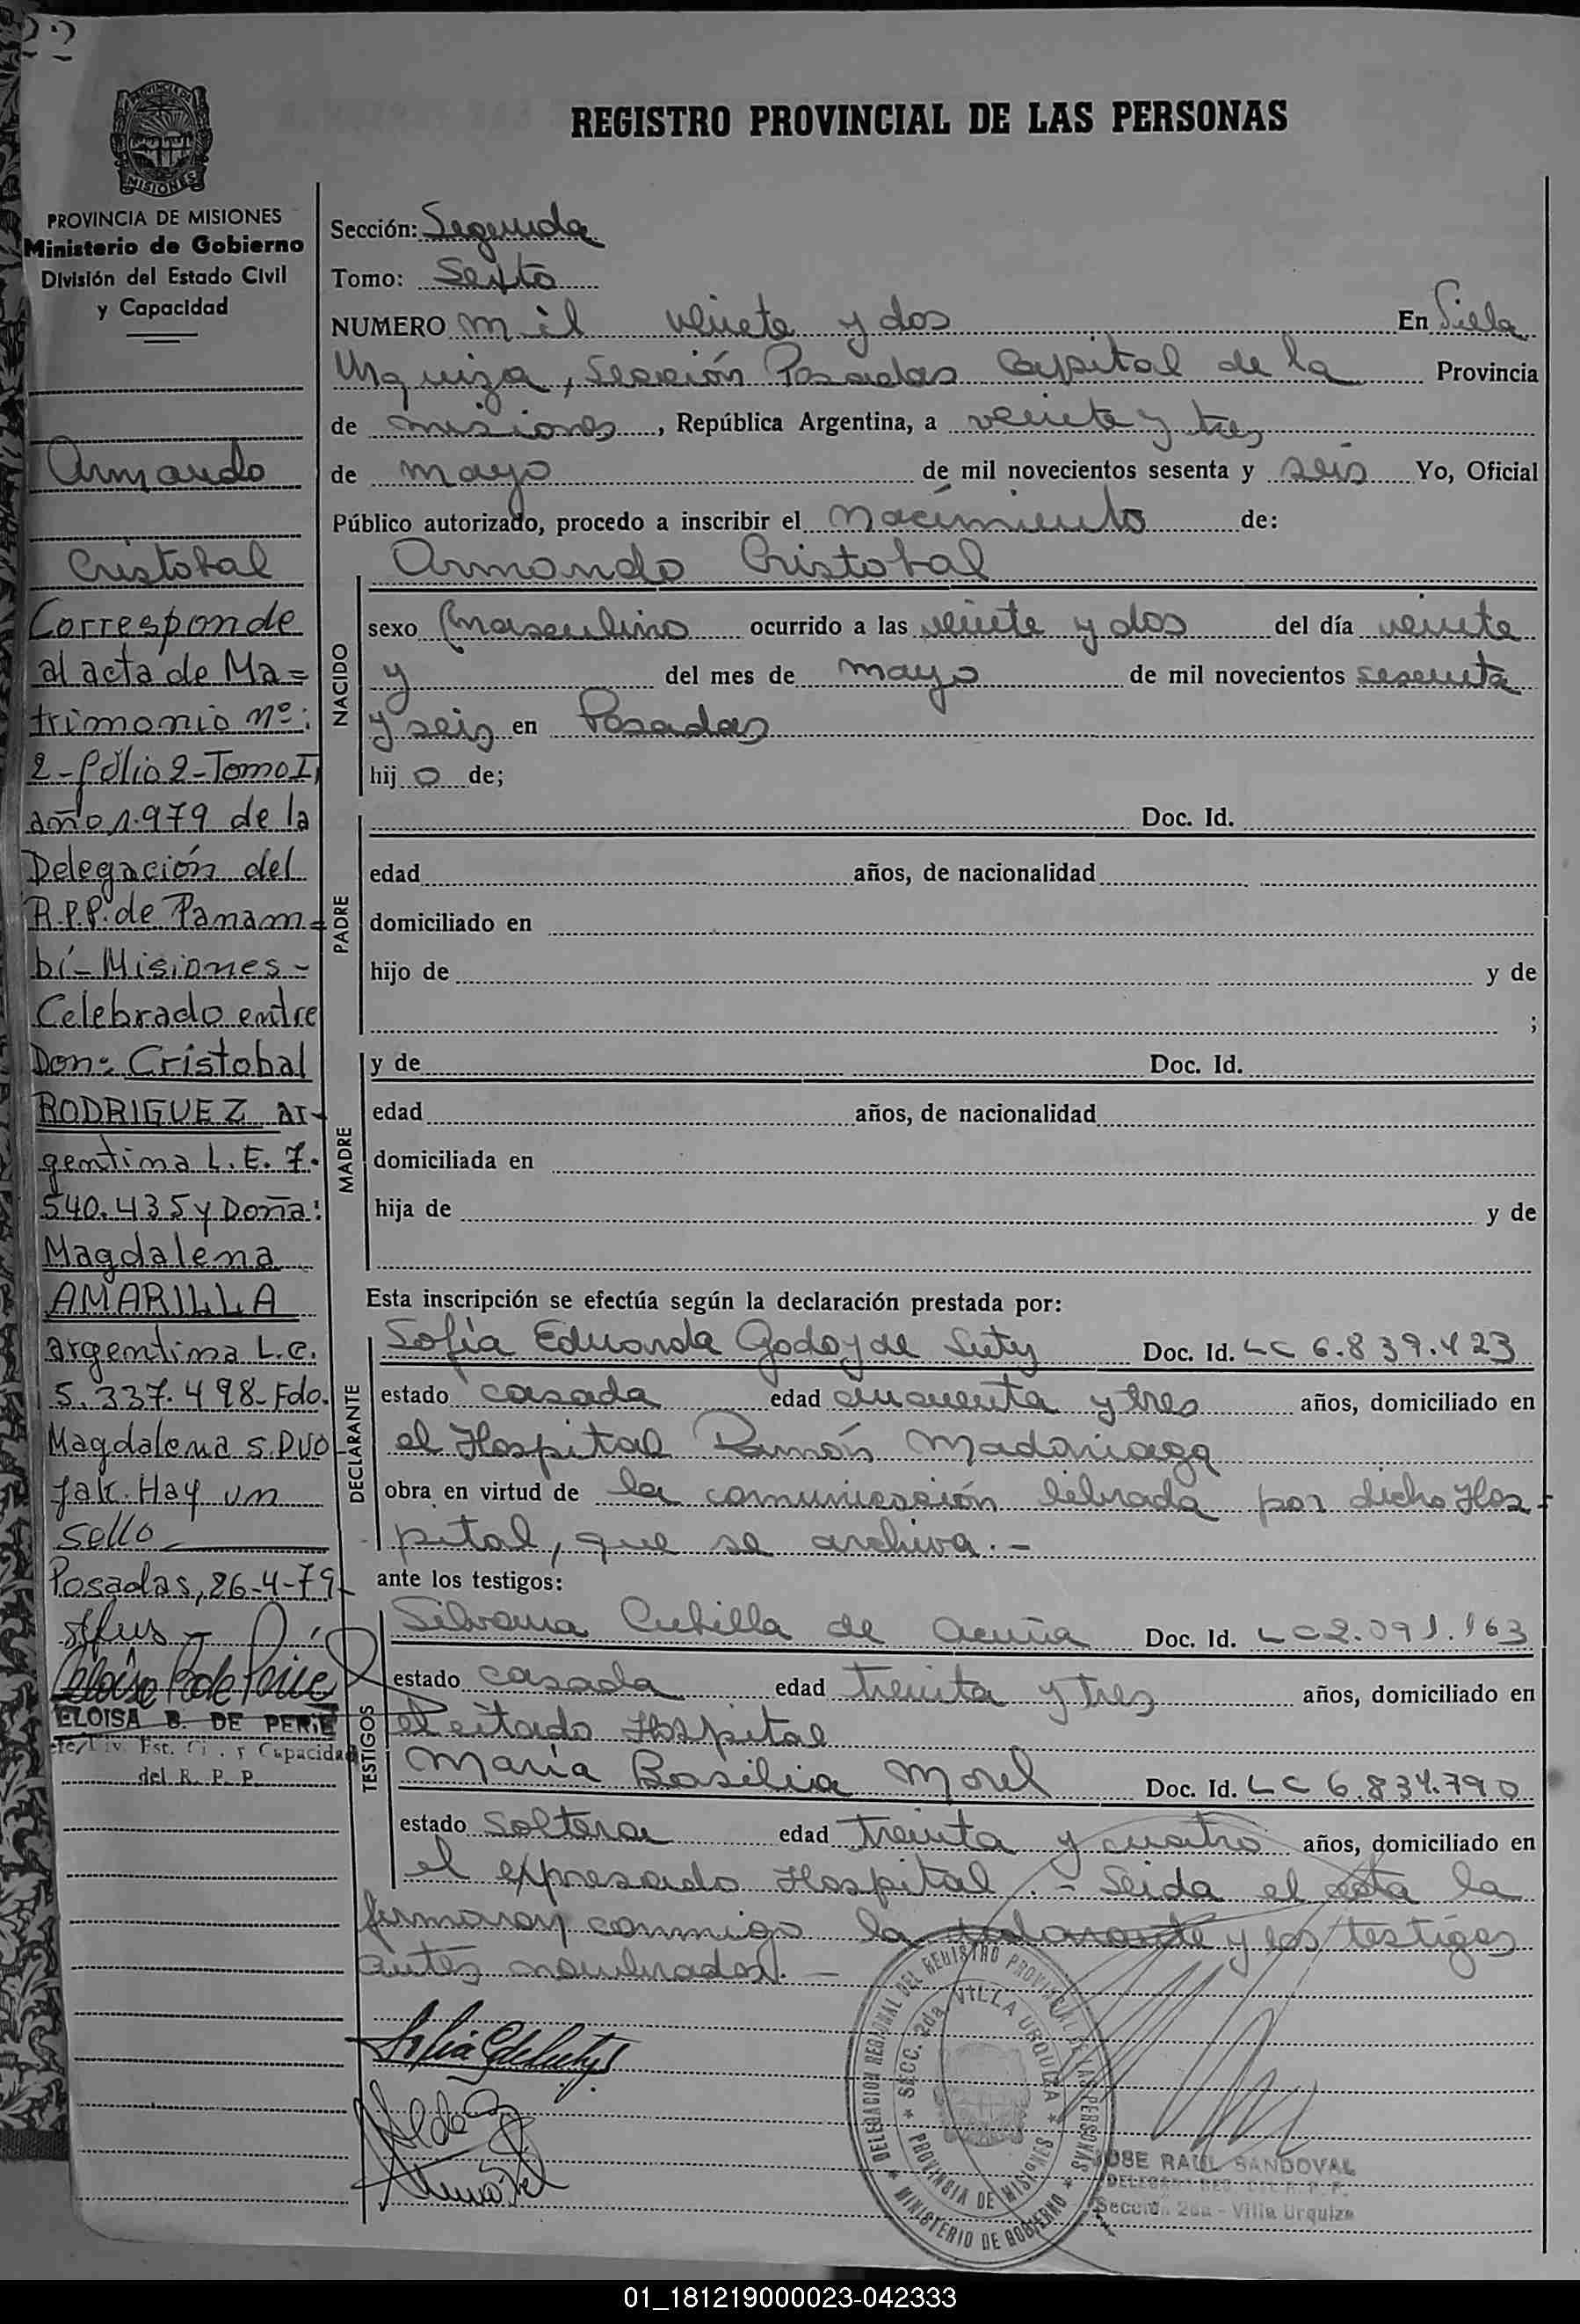 22
REGISTRO PROVINCIAL DE LAS PERSONAS
MISIONES
PROVINCIA DE MISIONES
Ministerio de Gobierno
División del Estado Civil
y Capacidad
Armando
Cristobal
Corresponde
al acta de Ma=
trimonio Nº:
2-folio 2-Tomo I,
año 1.979 de la
Delegación del
R.P.P. de Panam=
bí-Misiones-
Celebrado entre
Don: Cristobal
RODRIGUEZ ar-
gentina L.E. 7.
540.435 y Doña:
Magdalena
AMARILLA
argentina L.C.
5.337.498-Fdo.
Magdalena S. DUO
jak. Hay un
sello
Posadas, 26-4-79-
ELOISA B. DE PERIE
Est. Ci. y Capacidad
del R. P. P.
Sección: Segunda
Tomo: Sexto
NUMERO mil veinte y dos En Villa
Urquiza, Sección Posadas Capital de la Provincia
de misiones, República Argentina, a veinte y tres
de mayo de mil novecientos sesenta y seis Yo, Oficial
Público autorizado, procedo a inscribir el Nacimiento de:
Armando Cristobal
NACIDO
sexo masculino ocurrido a las veinte y dos del día veinte
y del mes de mayo de mil novecientos sesenta
y seis en Posadas
hij o de;
PADRE
Doc. Id.
edad años, de nacionalidad
domiciliado en
hijo de y de
;
MADRE
y de Doc. Id.
edad años, de nacionalidad
domiciliada en
hija de y de
Esta inscripción se efectúa según la declaración prestada por:
DECLARANTE
Sofía Eduarda Godoy de Suty Doc. Id. LC 6.839.423
estado casada edad cincuenta y tres años, domiciliado en
el Hospital Ramón Madariaga
obra en virtud de la comunicación librada por dicho Hos-
pital, que se archiva.-
ante los testigos:
TESTIGOS
Silvana Cubilla de Acuña Doc. Id. LC 2.091.163
estado casada edad treinta y tres años, domiciliado en
el citado Hospital
María Basilia Morel Doc. Id. LC 6.834.790
estado soltera edad treinta y cuatro años, domiciliado en
el expresado Hospital.- Leida el acta la
firmaron conmigo la declarante y los testigos
antes nombrados.-
DELEGACION REGIONAL DEL REGISTRO PROVINCIAL DE LAS PERSONAS
SECC. 2da. VILLA URQUIZA
PROVINCIA DE MISIONES
MINISTERIO DE GOBIERNO
JOSE RAUL SANDOVAL
Sección 2da - Villa Urquiza
01_181219000023-042333